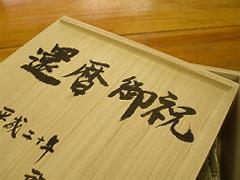 還暦御祝
平成二十年